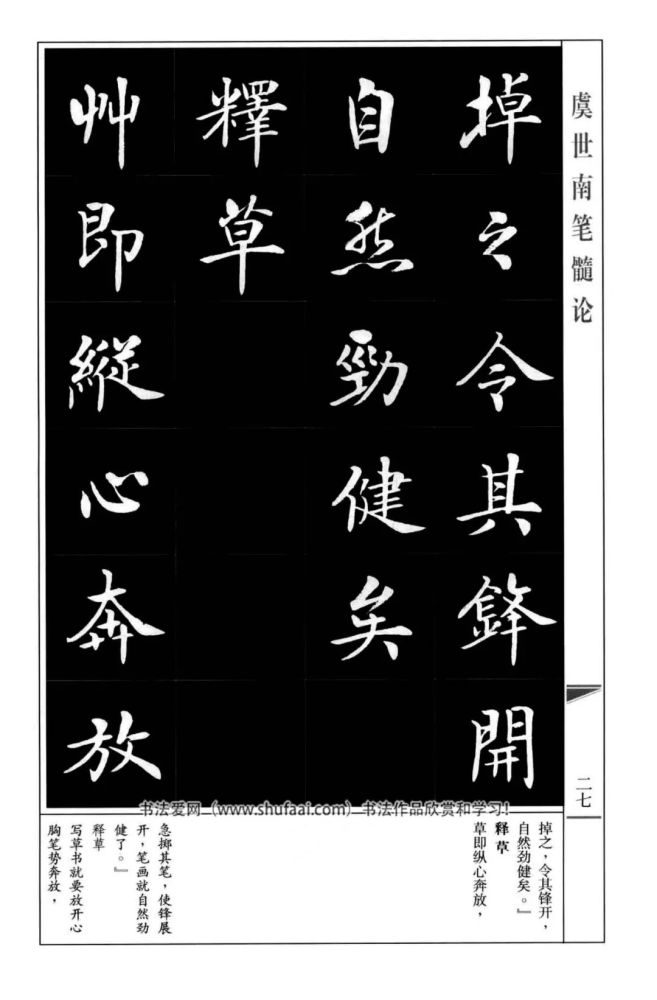 虞世南笔髓论
掉之令其鋒開
自然勁健矣
釋草
艸即縱心奔放
二七
书法爱网（www.shufaai.com）书法作品欣赏和学习！
掉之，令其锋开，
自然劲健矣。』
释草
草即纵心奔放，
急掷其笔，使锋展
开，笔画就自然劲
健了。』
释草
写草书就要放开心
胸笔势奔放，